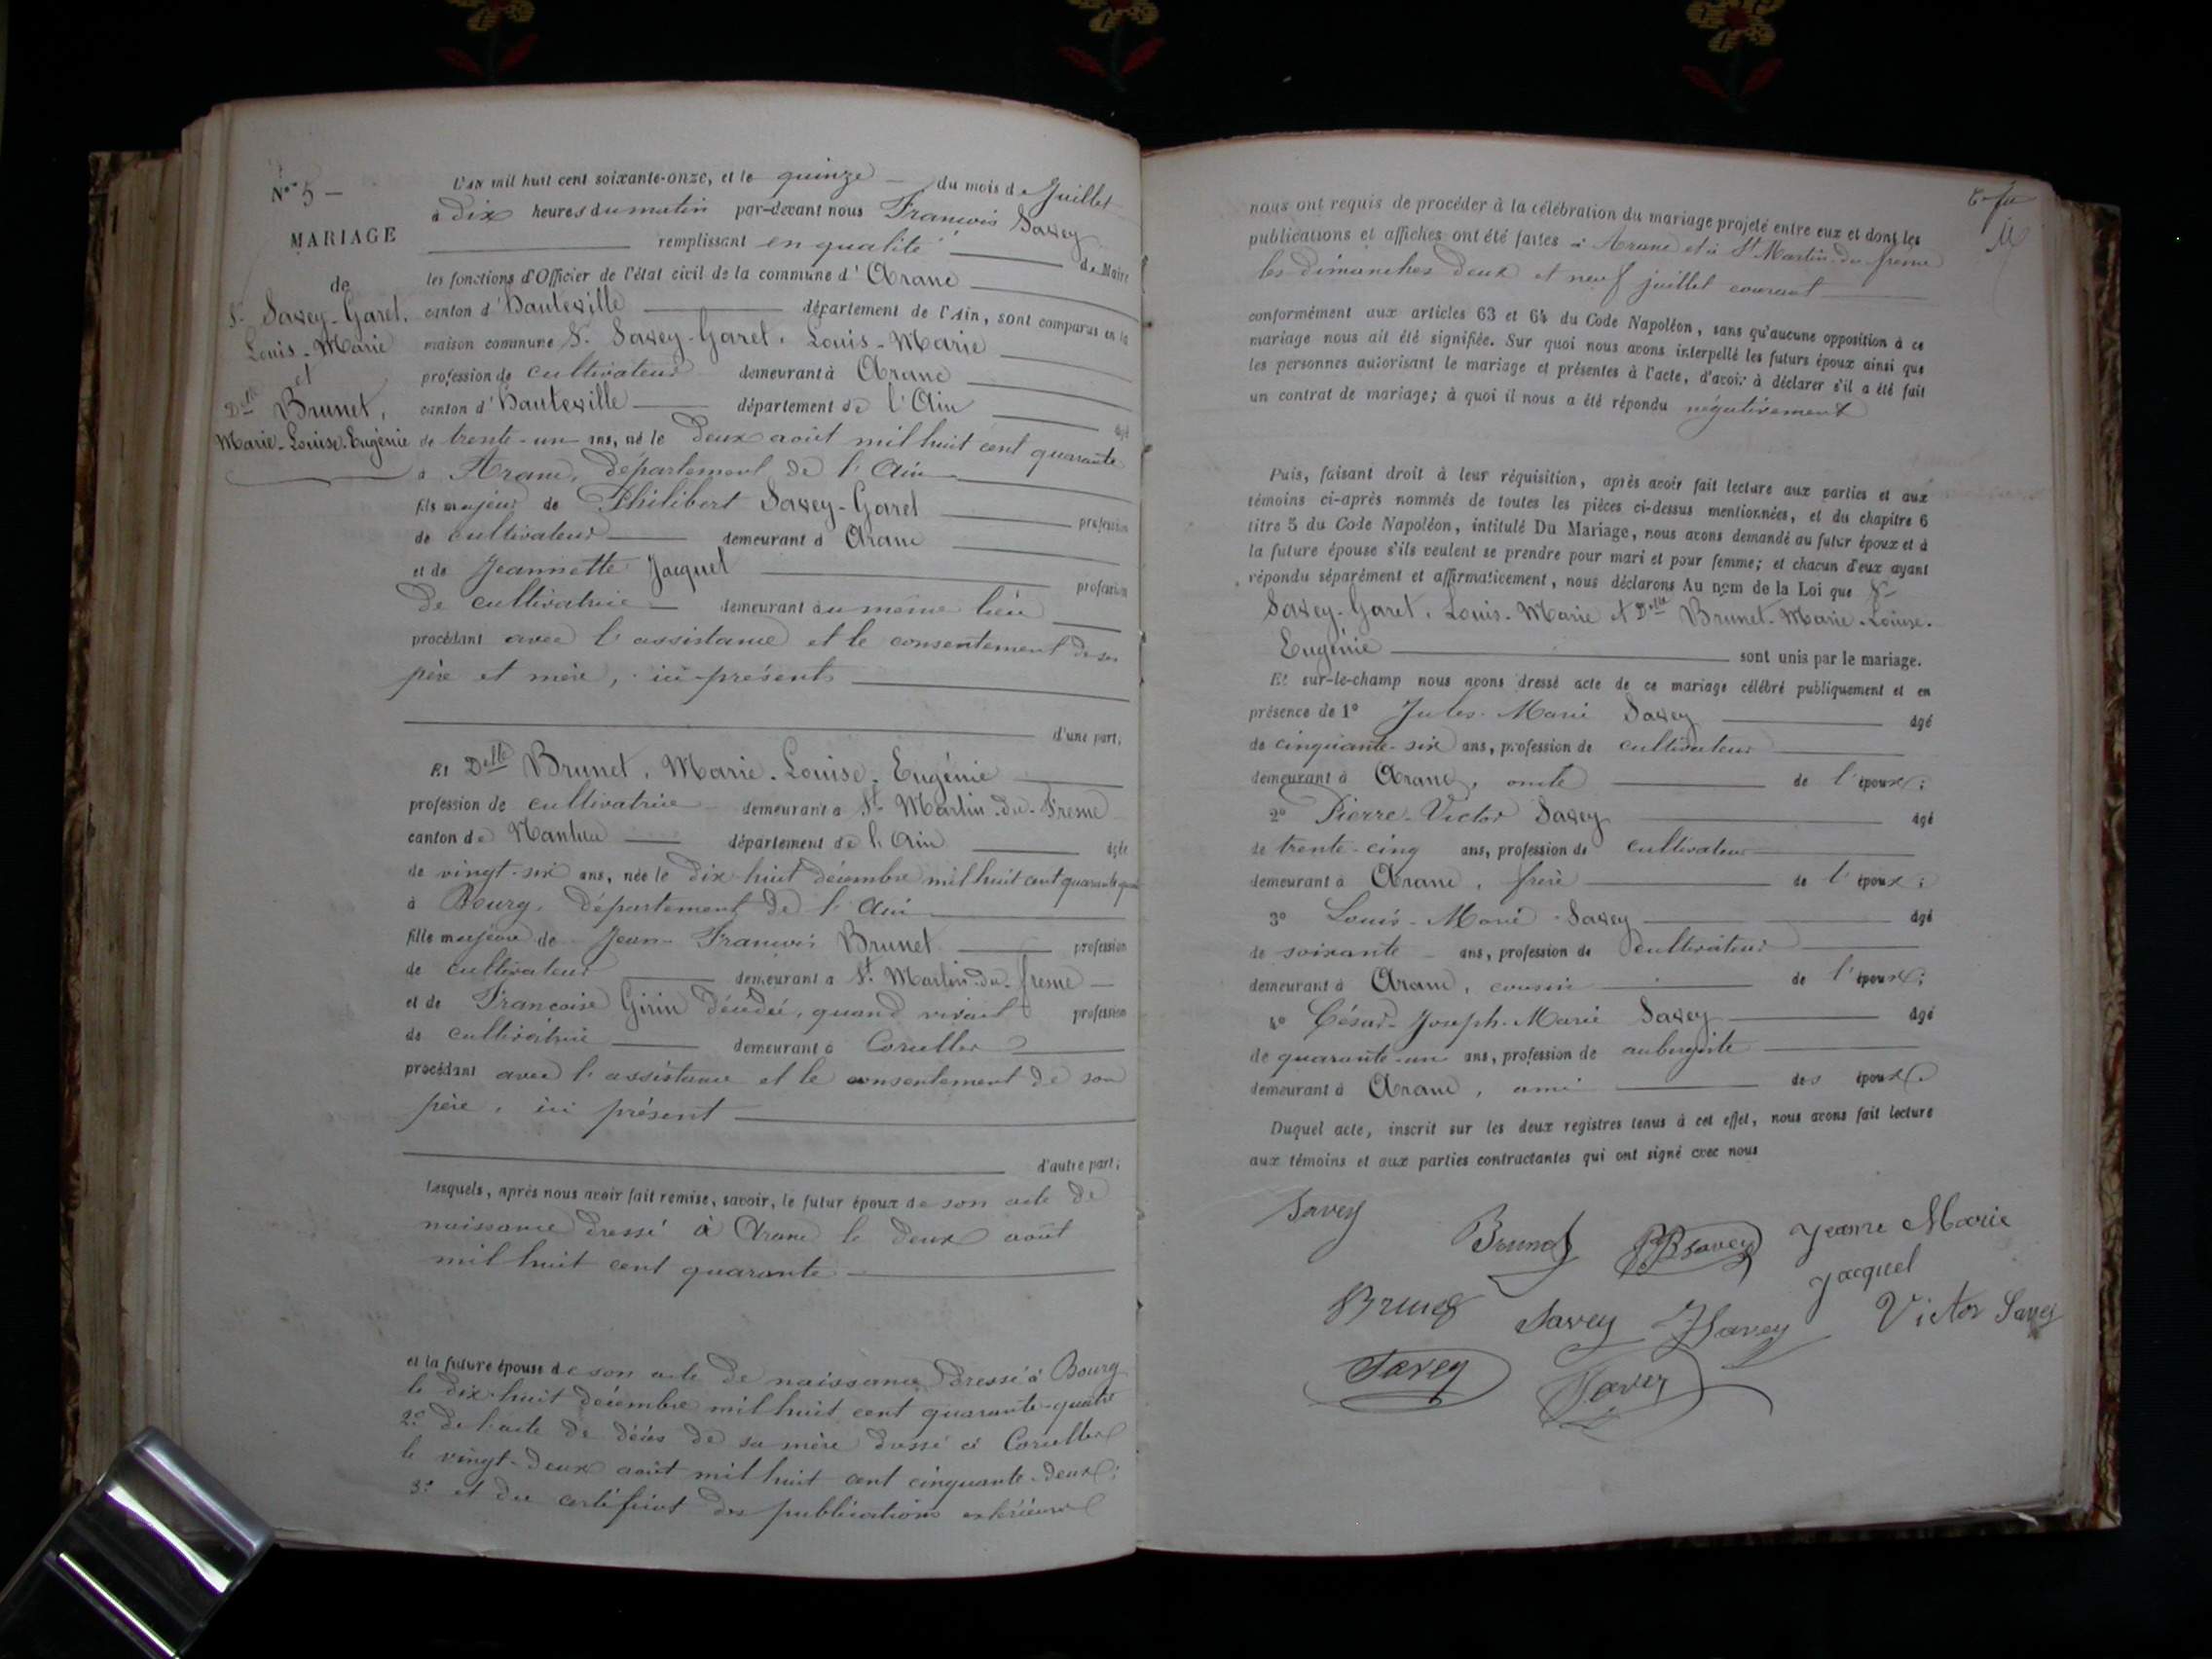 N° 5 —
MARIAGE
de
Sr Savey-Garet,
Louis-Marie
et
Delle Brunet,
Marie-Louise-Eugénie
L'an mil huit cent soixante-onze, et le quinze — du mois de Juillet
à dix heures du matin par-devant nous François Savey
remplissant en qualité de Maire
les fonctions d'Officier de l'état civil de la commune d'Aranc
canton d'Hauteville département de l'Ain, sont comparus en la
maison commune Sr Savey-Garet, Louis-Marie
profession de cultivateur demeurant à Aranc
canton d'Hauteville département de l'Ain âgé
de trente-un ans, né le deux août mil huit cent quarante
à Aranc, département de l'Ain
fils majeur de Philibert Savey-Garet profession
de cultivateur demeurant à Aranc
et de Jeannette Jacquet profession
de cultivatrice demeurant au même lieu
procédant avec l'assistance et le consentement de ses
père et mère, ici présents
d'une part;
Et Delle Brunet, Marie-Louise-Eugénie
profession de cultivatrice demeurant à St Martin-du-Fresne
canton de Nantua département de l'Ain âgée
de vingt-six ans, née le dix-huit décembre mil huit cent quarante quatre
à Bourg, département de l'Ain
fille majeure de Jean-François Brunet profession
de cultivateur demeurant à St Martin-du-fresne
et de Françoise Girin décédée, quand vivait profession
de cultivatrice demeurant à
procédant avec l'assistance et le consentement de son
père, ici présent
d'autre part;
Lesquels, après nous avoir fait remise, savoir, le futur époux de son acte de
naissance dressé à Aranc le deux août
mil huit cent quarante
et la future épouse de son acte de naissance dressé à Bourg
le dix-huit décembre mil huit cent quarante-quatre
2° de l'acte de décès de sa mère dressé à
le vingt-deux août mil huit cent cinquante-deux;
3° et du certificat des publications extérieures
nous ont requis de procéder à la célébration du mariage projeté entre eux et dont les
publications et affiches ont été faites à Aranc et à St Martin-du-fresne
les dimanches deux et neuf juillet courant
conformément aux articles 63 et 64 du Code Napoléon, sans qu'aucune opposition à ce
mariage nous ait été signifiée. Sur quoi nous avons interpellé les futurs époux ainsi que
les personnes autorisant le mariage et présentes à l'acte, d'avoir à déclarer s'il a été fait
un contrat de mariage; à quoi il nous a été répondu négativement
Puis, faisant droit à leur réquisition, après avoir fait lecture aux parties et aux
témoins ci-après nommés de toutes les pièces ci-dessus mentionnées, et du chapitre 6
titre 5 du Code Napoléon, intitulé Du Mariage, nous avons demandé au futur époux et à
la future épouse s'ils veulent se prendre pour mari et pour femme; et chacun d'eux ayant
répondu séparément et affirmativement, nous déclarons Au nom de la Loi que Sr
Savey-Garet, Louis-Marie et Delle Brunet-Marie-Louise-
Eugénie sont unis par le mariage.
Et sur-le-champ nous avons dressé acte de ce mariage célébré publiquement et en
présence de 1° Jules-Marie Savey âgé
de cinquante-six ans, profession de cultivateur
demeurant à Aranc, oncle de l'époux;
2° Pierre-Victor Savey âgé
de trente-cinq ans, profession de cultivateur
demeurant à Aranc, frère de l'époux;
3° Louis-Marie Savey âgé
de soixante ans, profession de cultivateur
demeurant à Aranc, cousin de l'époux;
4° César-Joseph-Marie Savey âgé
de quarante-un ans, profession de aubergiste
demeurant à Aranc, ami des époux
Duquel acte, inscrit sur les deux registres tenus à cet effet, nous avons fait lecture
aux témoins et aux parties contractantes qui ont signé avec nous
Savey
Brunet
Savey
Jeanne Marie
Jacquet
Brunet
Savey
Savey
Victor Savey
Savey
Savey